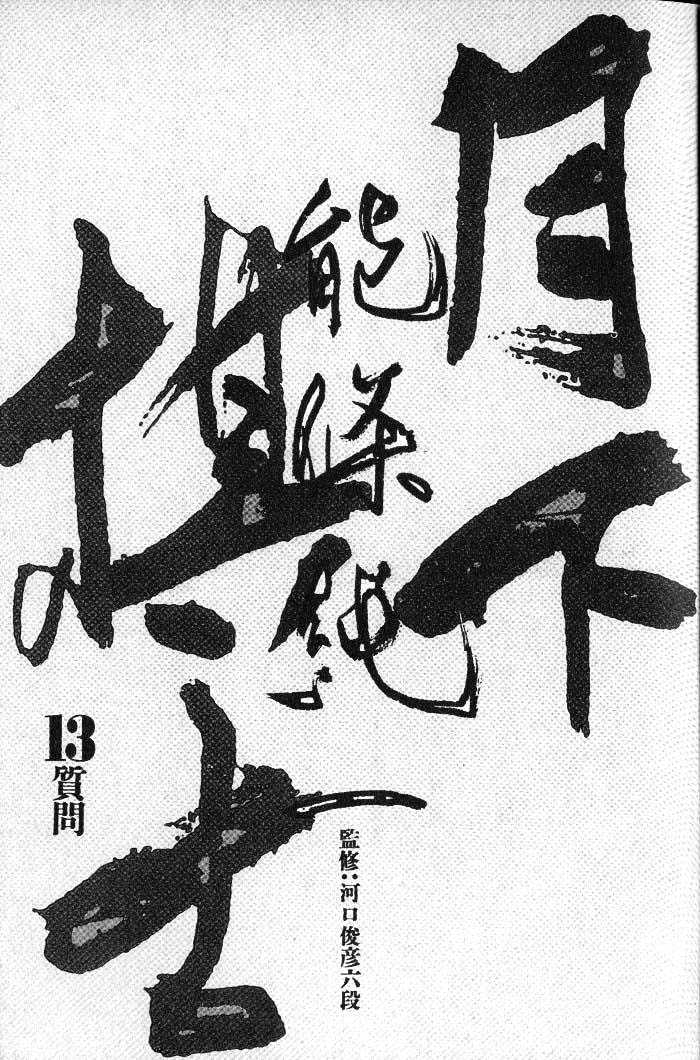 月下
棋士
能條純一
監修:河口俊彦六段
13
質問